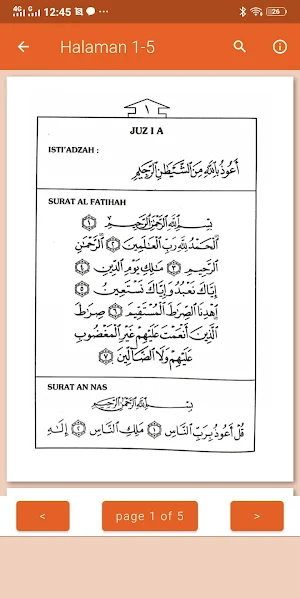 4G G 12:45 26
Halaman 1-5
١
JUZ I A
ISTI'ADZAH :
أَعُوذُ بِاللَّهِ مِنَ الشَّيْطَٰنِ الرَّجِيْمِ
SURAT AL FATIHAH
بِسْمِ اللَّهِ الرَّحْمَٰنِ الرَّحِيْمِ ۝١
الْحَمْدُ لِلَّهِ رَبِّ الْعَٰلَمِيْنَ ۝٢ الرَّحْمَٰنِ
الرَّحِيْمِ ۝٣ مَٰلِكِ يَوْمِ الدِّيْنِ ۝٤
إِيَّاكَ نَعْبُدُ وَإِيَّاكَ نَسْتَعِيْنُ ۝٥
اِهْدِنَا الصِّرَاطَ الْمُسْتَقِيْمَ ۝٦ صِرَاطَ
الَّذِيْنَ أَنْعَمْتَ عَلَيْهِمْ غَيْرِ الْمَغْضُوْبِ
عَلَيْهِمْ وَلَا الضَّالِّيْنَ ۝٧
SURAT AN NAS
بِسْمِ اللَّهِ الرَّحْمَٰنِ الرَّحِيْمِ
قُلْ أَعُوذُ بِرَبِّ النَّاسِ ۝١ مَلِكِ النَّاسِ ۝٢ إِلَٰهِ
< page 1 of 5 >